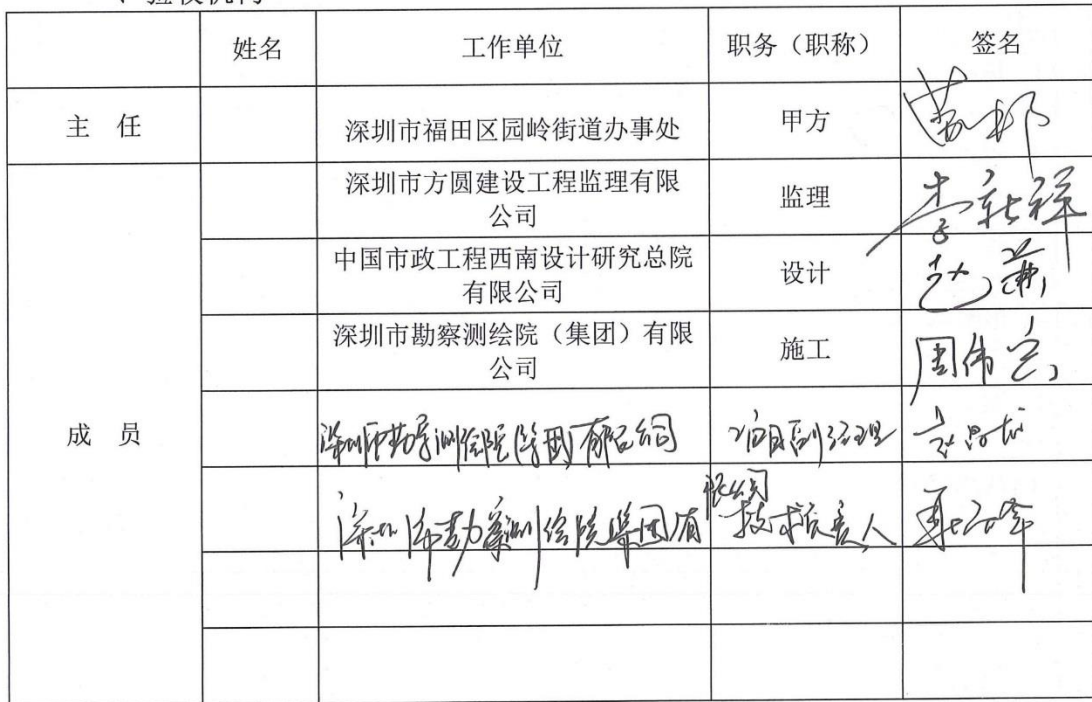 姓名 工作单位 职务（职称） 签名
主 任 深圳市福田区园岭街道办事处 甲方
深圳市方圆建设工程监理有限
公司 监理 李新祥
中国市政工程西南设计研究总院
有限公司 设计
深圳市勘察测绘院（集团）有限
公司 施工 周伟
成 员
深圳市勘察测绘院(集团)有限公司 项目副经理
深圳市勘察测绘院集团有限公司 技术负责人